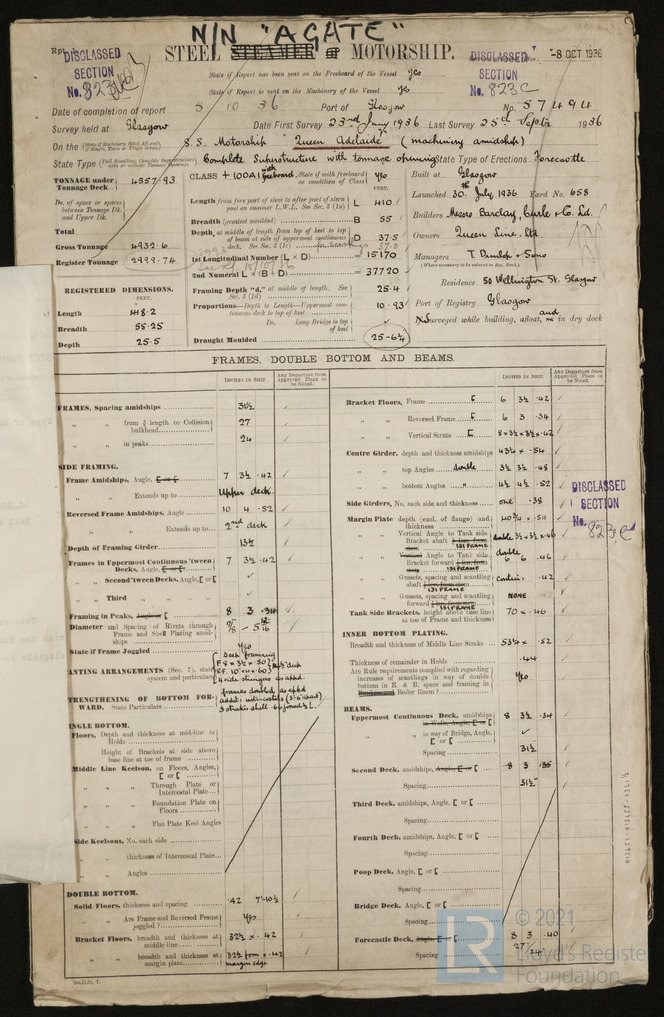 N/N "AGATE"
Rpt.
DISCLASSED SECTION No. 823C
STEEL STEAMER OR MOTORSHIP.
DISCLASSED SECTION No. 823C
-8 OCT 1936
State if Report has been sent on the Freeboard of the Vessel Yes
State if Report is sent on the Machinery of the Vessel Yes
Date of completion of report 5. 10 36 Port of Glasgow No. 57494
Survey held at Glasgow Date First Survey 23rd Jany 1936 Last Survey 25th Septr 1936
On the (State if Machinery fitted Aft and if Single, Twin or Triple Screw) S.S. Motorship "Queen Adelaide" (machinery amidships)
State Type (Full Scantling, Complete Superstructure with or without Tonnage Openings) Complete Superstructure with tonnage opening State Type of Erections Forecastle
TONNAGE under Tonnage Deck 4557.93
Do. of space or spaces between Tonnage Dk. and Upper Dk.
Total
Gross Tonnage 4932.6
Register Tonnage 2999.74
REGISTERED DIMENSIONS.
FEET.
Length 418.2
Breadth 55.25
Depth 25.5
CLASS +100A1 with freeboard. State if with freeboard as condition of Class Yes
FEET.
Length from fore part of stem to after part of stern post on summer L.W.L. See Sec. 2 (1a) L 410
Breadth (greatest moulded) B 55
Depth, at middle of length from top of keel to top of beam at side of uppermost continuous deck. See Sec. 3 (1c) D 37.5
1st Longitudinal Number (L × D) = 15170
2nd Numeral L × (B + D) = 37720
Framing Depth "d," at middle of length. See Sec. 3 (1d) 25.4
Proportions—Depth to Length—Uppermost continuous deck to top of keel 10.93
Do. Long Bridge to top of keel
Draught Moulded 25-6¼
Built at Glasgow
Launched 30th July 1936 Yard No. 658
Builders Messrs Barclay, Curle & Co. Ld.
Owners Queen Line. Ltd
Managers T. Dunlop & Sons
(Where necessary to be entered in Reg. Book.)
Residence 50 Wellington St. Glasgow
Port of Registry Glasgow
Surveyed while building, afloat, and in dry dock
FRAMES, DOUBLE BOTTOM AND BEAMS.
INCHES IN SHIP. Any Departure from Approved Plans to be Noted.
FRAMES, Spacing amidships 31½
" " from ⅗ length to Collision bulkhead 27
" " in peaks 24
SIDE FRAMING.
Frame Amidships, Angle, [ or [ 7 3½ .42
" " Extends up to Upper deck
Reversed Frame Amidships, Angle 10 4 .52
" " Extends up to 2nd deck
Depth of Framing Girder 13½
Frames in Uppermost Continuous 'tween Decks, Angle, [ or [ 7 3½ .42
" Second 'tween Decks, Angle, [ or [
" Third " "
Framing in Peaks, Angle or [ 8 3 .34
Diameter and Spacing of Rivets through Frame and Shell Plating amidships
State if Frame Joggled Yes
ANTING ARRANGEMENTS (Sec. 7), state system and particulars
Deep framing
4 side stringers as appd.
TRENGTHENING OF BOTTOM FORWARD. State Particulars
frames doubled as appd
INGLE BOTTOM.
Floors, Depth and thickness at mid-line in Holds
Height of Brackets at side above base line at toe of frame
Middle Line Keelson, on Floors, Angles, [ or [
" " Through Plate or Intercostal Plate
" " Foundation Plate on Floors
" " Flat Plate Keel Angles
Side Keelsons, No. each side
" " thickness of Intercostal Plate
" " Angles
DOUBLE BOTTOM.
Solid Floors, thickness and spacing .42 7'-10½
" " Are Frame and Reversed Frame joggled? Yes
Bracket Floors, breadth and thickness at middle line 32½ × .42
" " breadth and thickness at margin plate 32½ from × .42 margin edge
INCHES IN SHIP. Any Departure from Approved Plans to be Noted.
Bracket Floors, Frame [ 6 3½ .42
" " Reversed Frame [ 6 3 .34
" " Vertical Struts [ 8 × 3½ × 3½ × .42
Centre Girder, depth and thickness amidships 43½ × .54
" " top Angles double 3½ 3½ .48
" " bottom Angles " 4½ 4½ .52
Side Girders, No. each side and thickness one .38
Margin Plate depth (excl. of flange) and thickness
" " Vertical Angle to Tank side Bracket abaft 131 FRAME double 3½ × 3½ × .46
" " Vertical Angle to Tank side Bracket forward 131 FRAME double 6 6 .46
" " Gussets, spacing and scantling abaft 131 FRAME Contin: .42
" " Gussets, spacing and scantling forward 131 FRAME NONE
Tank Side Brackets, height above base line at toe of Frame and thickness 70 × .46
INNER BOTTOM PLATING.
Breadth and thickness of Middle Line Strake 53¼ × .52
Thickness of remainder in Holds .44
Are Rule requirements complied with regarding increase of scantlings in way of double bottom in E. & B. space and framing in Boiler Room? Yes
BEAMS.
Uppermost Continuous Deck, amidships in Wells, Angle, [ or [ 8 3½ .34
" " in way of Bridge, Angle, [ or [
Spacing 31½
Second Deck, amidships, Angle, [ or [ 8 3 .35
Spacing 31½"
Third Deck, amidships, Angle, [ or [
Spacing
Fourth Deck, amidships, Angle, [ or [
Spacing
Poop Deck, Angle, [ or [
Spacing
Bridge Deck, Angle, [ or [
Spacing
Forecastle Deck, Angle, [ or [ 8 3 .40
Spacing 27/24
DISCLASSED SECTION No. 823C
LR
© 2021
Lloyd's Register
Foundation